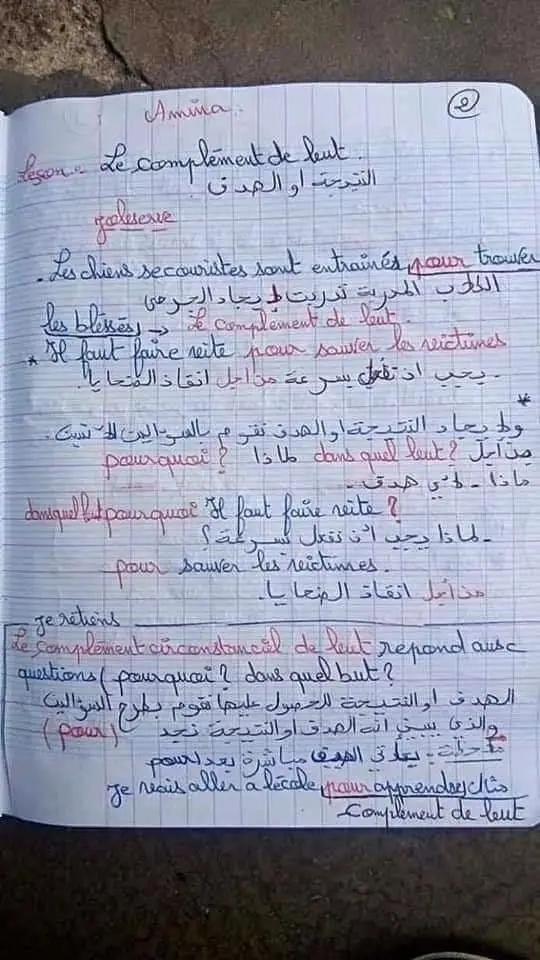 2
Amina
Leçon: Le complément de but.
النتيجة او الهدف.
j'observe
. Les chiens secouristes sont entrainés pour trouver
الكلاب المدربة تدربت لإيجاد الجرحى
les bléssés → Le complément de but.
* Il faut faire vite pour sauver les victimes
. يجب ان تفعل بسرعة من اجل انقاذ الضحايا.
*
ولإيجاد النتيجة او الهدف نقوم بالسؤالين
من أجل dans quel but? لماذا pourquoi?
ماذا - لأي هدف -
dans quel but pourquoi Il faut faire vite?
- لماذا يجب ان نفعل بسرعة؟
pour sauver les victimes.
من أجل انقاذ الضحايا.
je rétiens
Le complément circonstanciél de but repond aux
questions (pourquoi? dans quel but?
الهدف او النتيجة للحصول عليها نقوم بطرح السؤالين
والذي يبين انه الهدف او النتيجة نجد (pour)
ملاحظة: يأتي الهدف مباشرة بعد pour
مثال je vais aller a l'école pour apprendre
Complément de but